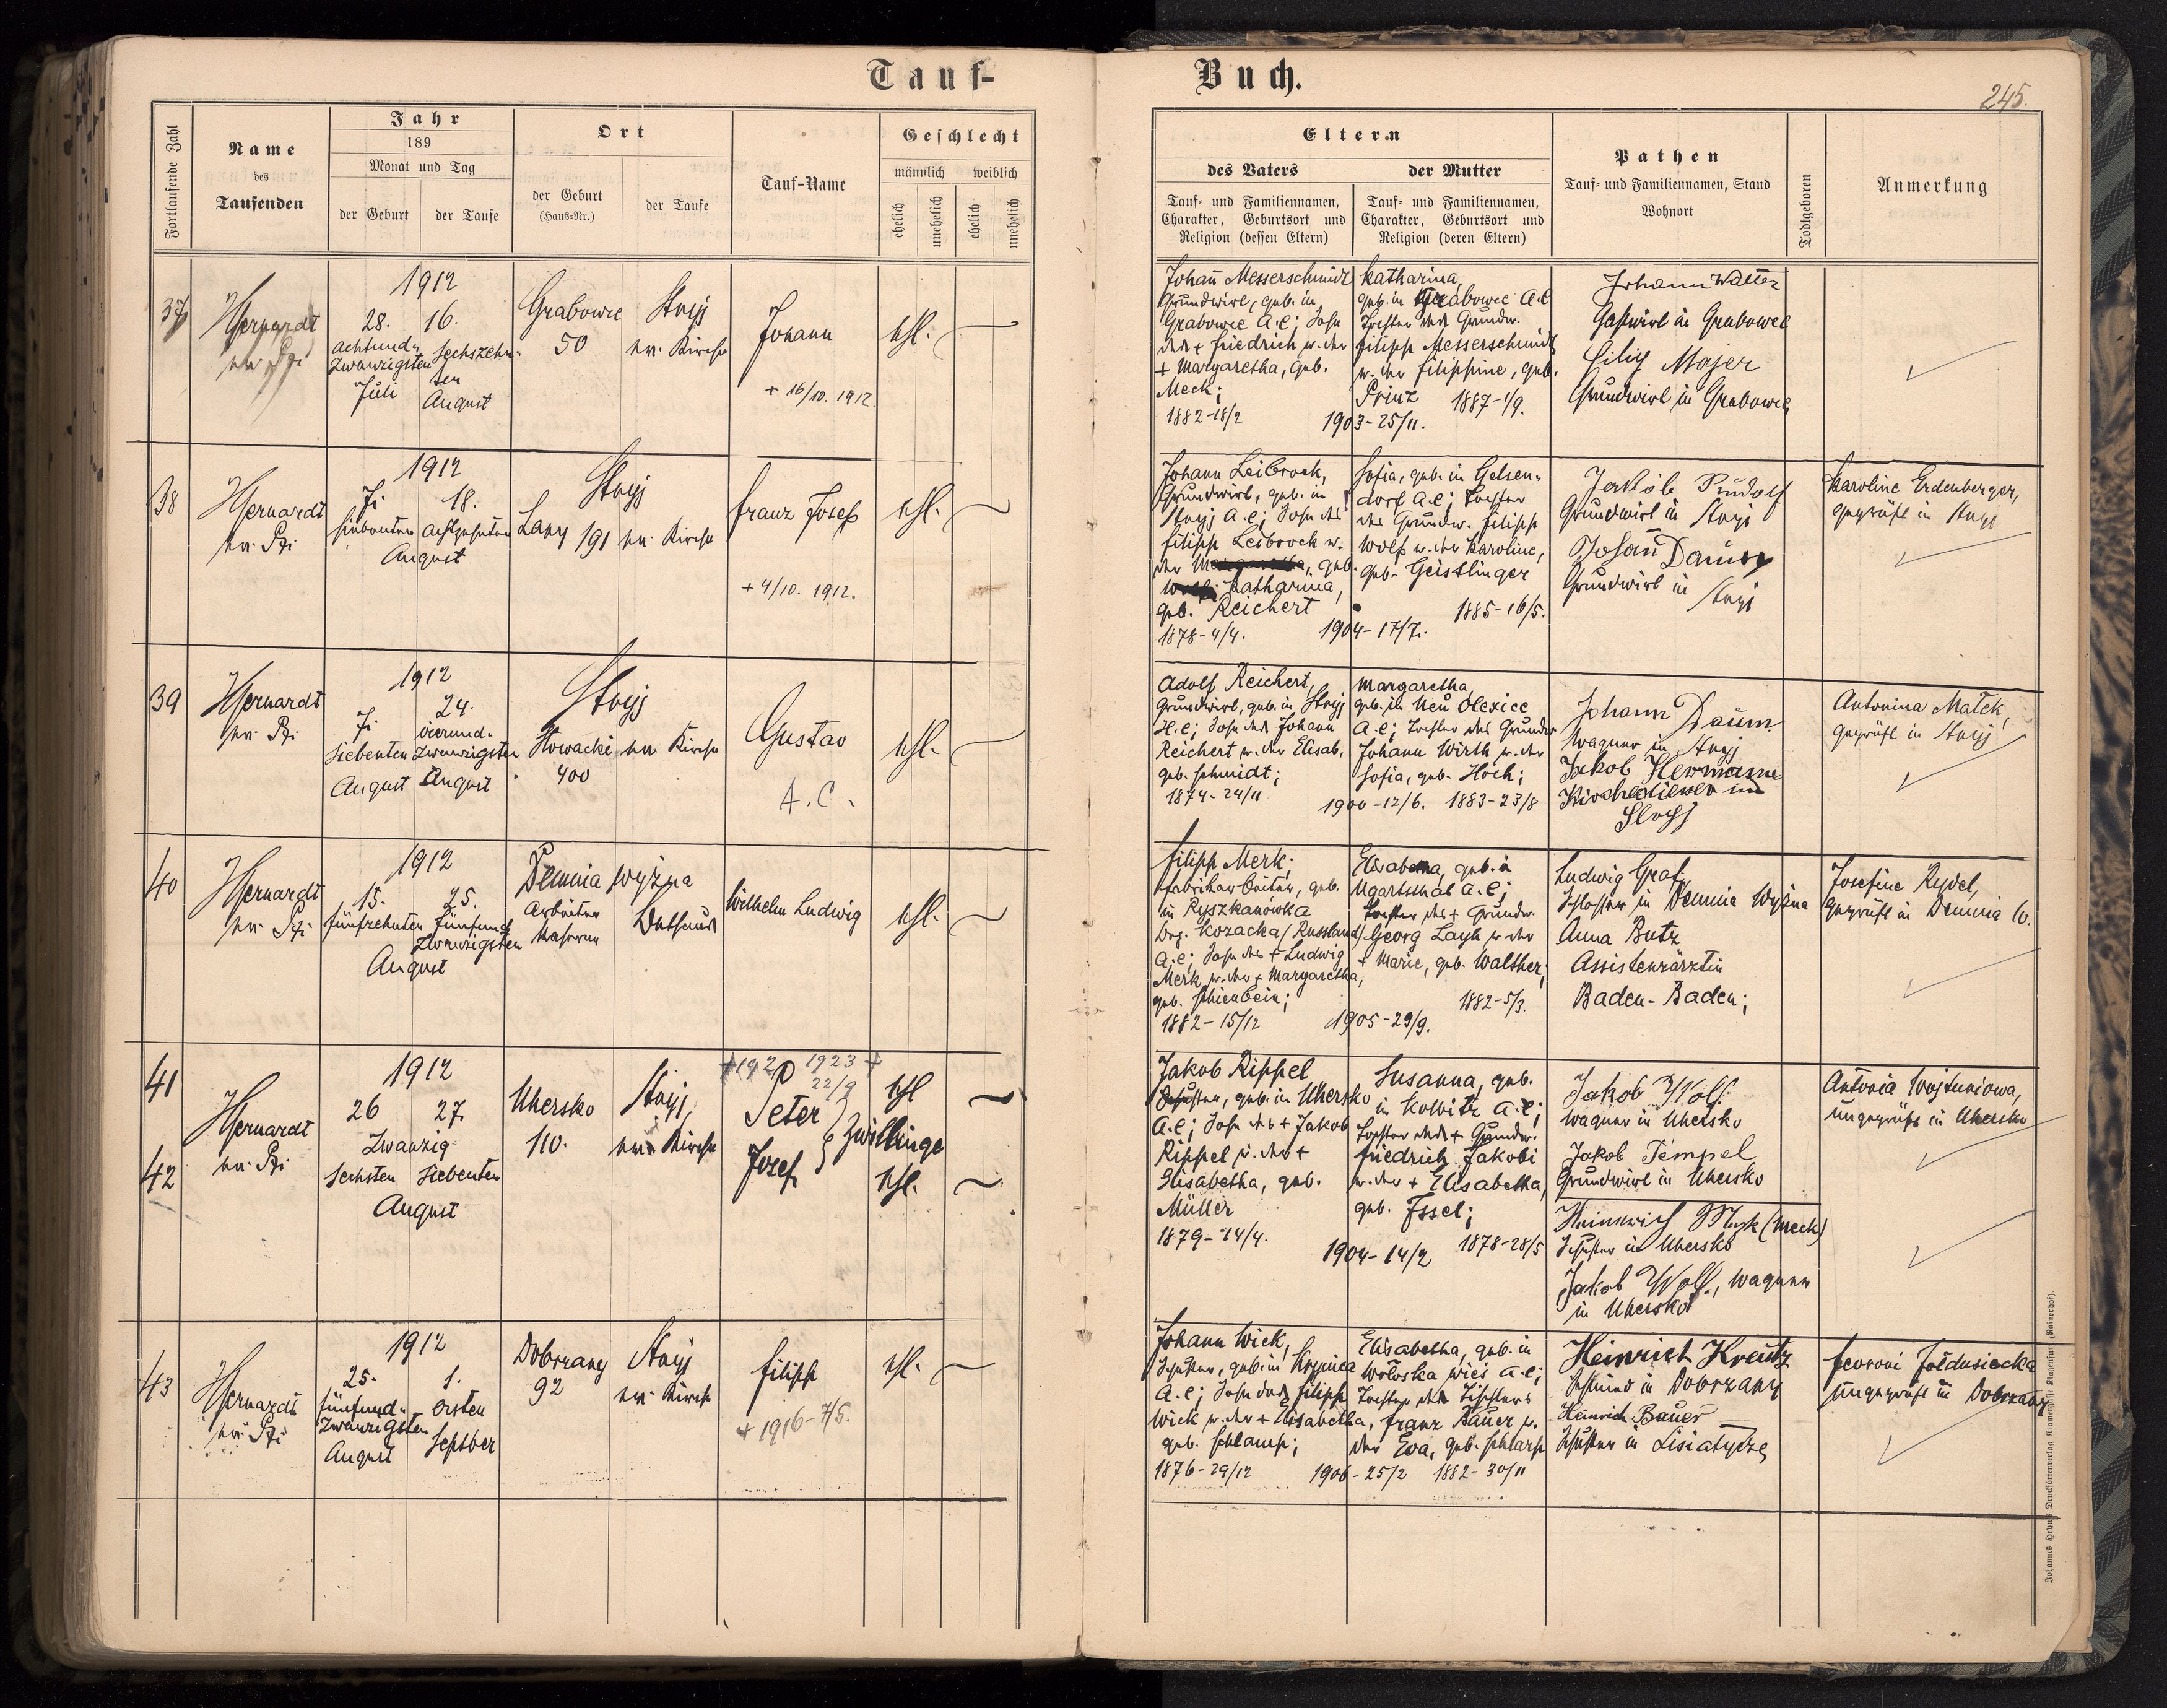 Tauf-
Buch.
245.
Fortlaufende Zahl
Name
des
Taufenden
Jahr
189
Monat und Tag
der Geburt
der Taufe
Ort
der Geburt
(Haus-Nr.)
der Taufe
Tauf-Name
Geschlecht
männlich
weiblich
ehelich
unehelich
ehelich
unehelich
Eltern
des Vaters
Tauf- und Familiennamen,
Charakter, Geburtsort und
Religion (dessen Eltern)
der Mutter
Tauf- und Familiennamen,
Charakter, Geburtsort und
Religion (deren Eltern)
Pathen
Tauf- und Familiennamen, Stand
Wohnort
Todtgeboren
Anmerkung
37
1912
28. 16.
achtund-
zwanzigsten
Juli
Sechszehn-
ten
August
Grabowce
50
Stryj
ev. Kirche
Johann
+ 16/10. 1912.
ehl.
Johann Messerschmidt
Grundwirt, geb. in
Grabowce A.C; Sohn
des + Friedrich u. der
+ Margaretha, geb.
Meck;
1882-18/2
1903-25/11.
Katharina,
geb. in Grabowce A.C
Tochter des Grundw.
Filipp Messerschmidt
u. der Filippine, geb.
Prinz 1887-1/9.
Johann Walter
Gastwirt in Grabowce
Majer
Grundwirt in Grabowce
38
1912
7. 18.
siebenten achtzehnten
August
Lany 191
Stryj
ev. Kirche
Franz Josef
+ 4/10. 1912.
ehl.
Johann Leibrock,
Grundwirt, geb. in
Stryj A.C; Sohn des
Filipp Leibrock u.
der Katharina,
geb. Reichert
1878-4/4.
1904-17/7.
Sofia, geb. in Gelsen-
dorf A.C; Tochter
des Grundw. Filipp
Wolf u. der Karoline,
geb. Geistlinger
1885-16/5.
Jakob Rudolf
Grundwirt in Stryj
Johann Daum
Grundwirt in Stryj
Karoline Erdenberger,
geprüft in Stryj
39
1912
7. 24.
siebenten
August
vierund-
zwanzigsten
August
Stryj
Slowacki
400
ev. Kirche
Gustav
A.C.
ehl.
Adolf Reichert,
Grundwirt, geb. in Stryj
H.C; Sohn des Johann
Reichert u. der Elisab.
geb. Schmidt;
1874-24/11
1900-12/6.
Margaretha
geb. in Neu Olexice
A.C; Tochter des Grundw
Johann Wirth u. der
Sofia, geb. Hoch;
1883-23/8
Johann Daum
Wagner in Stryj
Jakob Hermann
Kirchediener in
Stryj
Antonina Matek,
geprüft in Stryj
40
1912
15. 25.
fünfzehnten fünfund
zwanzigsten
August
Demnia wyżna
Arbeiter
Kaserne
Bethaus
Wilhelm Ludwig
ehl.
Filipp Merk;
Fabriksarbeiter, geb.
in Ryszkanówka
Bez. Kozacka (Russland)
A.C; Sohn des + Ludwig
Merk u. der + Margaretha,
geb. Schienbein;
1882-15/12
1905-29/9.
Elisabetha, geb. in
Ugartsthal A.C;
Tochter des + Grundw.
Georg Layh u. der
+ Marie, geb. Walther;
1882-5/3.
Ludwig Graf,
Schlosser in Demnia Wyżna
Anna Butz
Assistenzärztin
Baden-Baden;
Josefine Rydel,
geprüft in Demnia W.
41
42
1912
26 27.
Zwanzig
sechsten siebenten
August
Uhersko
110.
Stryj,
ev. Kirche
1923 +
22/9
Peter
Josef
Zwillinge
ehl
ehl.
Jakob Rippel
Schuster, geb. in Uhersko
A.C; Sohn des + Jakob
Rippel u. der +
Elisabetha, geb.
Müller
1879-14/4.
1904-14/2
Susanna, geb.
in Kolbitz A.C;
Tochter des + Grundw.
Friedrich Jakobi
u. der + Elisabetha,
geb. Issel;
1878-28/5
Jakob Wolf
Wagner in Uhersko
Jakob Tempel
Grundwirt in Uhersko
Heinrich Mek (Meck)
Schuster in Uhersko
Jakob Wolf, Wagner
in Uhersko
Antonia Wojtuniowa,
ungeprüft in Uhersko
43
1912
25. 1.
fünfund-
zwanzigsten
August
ersten
Septber
Dobrzany
92
Stryj
ev. Kirche
Filipp
+ 1916-7/5.
ehl.
Johann Wick,
Schuster, geb. in Krynica
A.C; Sohn des Filipp
Wick u. der + Elisabetha,
geb. Schlamp;
1876-29/12
1906-25/2
Elisabetha, geb. in
Wołoska wieś A.C;
Tochter des Tischlers
Franz Bauer u.
der Eva, geb. Scharp
1882-30/11
Heinrich Kreutz
Schmied in Dobrzany
Heinrich Bauer
Schuster in Lisiatycze
ungeprüft in Dobrzany